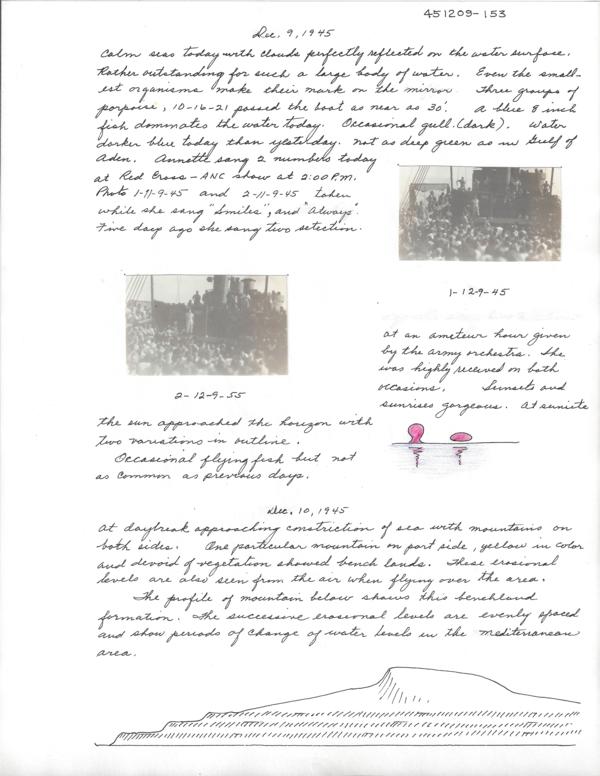 451209-153
Dec. 9, 1945
Calm seas today with clouds perfectly reflected on the water surface.
Rather outstanding for such a large body of water. Even the small-
est organisms make their mark on the mirror. Three groups of
porpoise, 10-16-21 passed the boat as near as 30'. A blue 8 inch
fish dominates the water today. Occasional gull. (dark). Water
darker blue today than yesterday. not as deep green as in Gulf of
Aden. Annette sang 2 numbers today
at Red Cross-ANC show at 2:00 P.M.
Photo 1-11-9-45 and 2-11-9-45 taken
while she sang "Smiles", and "Always".
Five days ago she sang two setection.
1-12-9-45
2-12-9-55
at an ameteur hour given
by the army orchestra. She
was highly received on both
occasions. Sunsets and
sunrises gorgeous. At sunset
the sun approached the horizon with
two variations in outline.
Occasional flying fish but not
as common as previous days.
Dec. 10, 1945
At daybreak approaching constriction of sea with mountains on
both sides. One particular mountain on port side, yellow in color
and devoid of vegetation showed bench lands. These erosional
levels are also seen from the air when flying over the area.
The profile of mountain below shows this benchland
formation. The successive erosional levels are evenly spaced
and show periods of change of water levels in the Mediterranean
area.